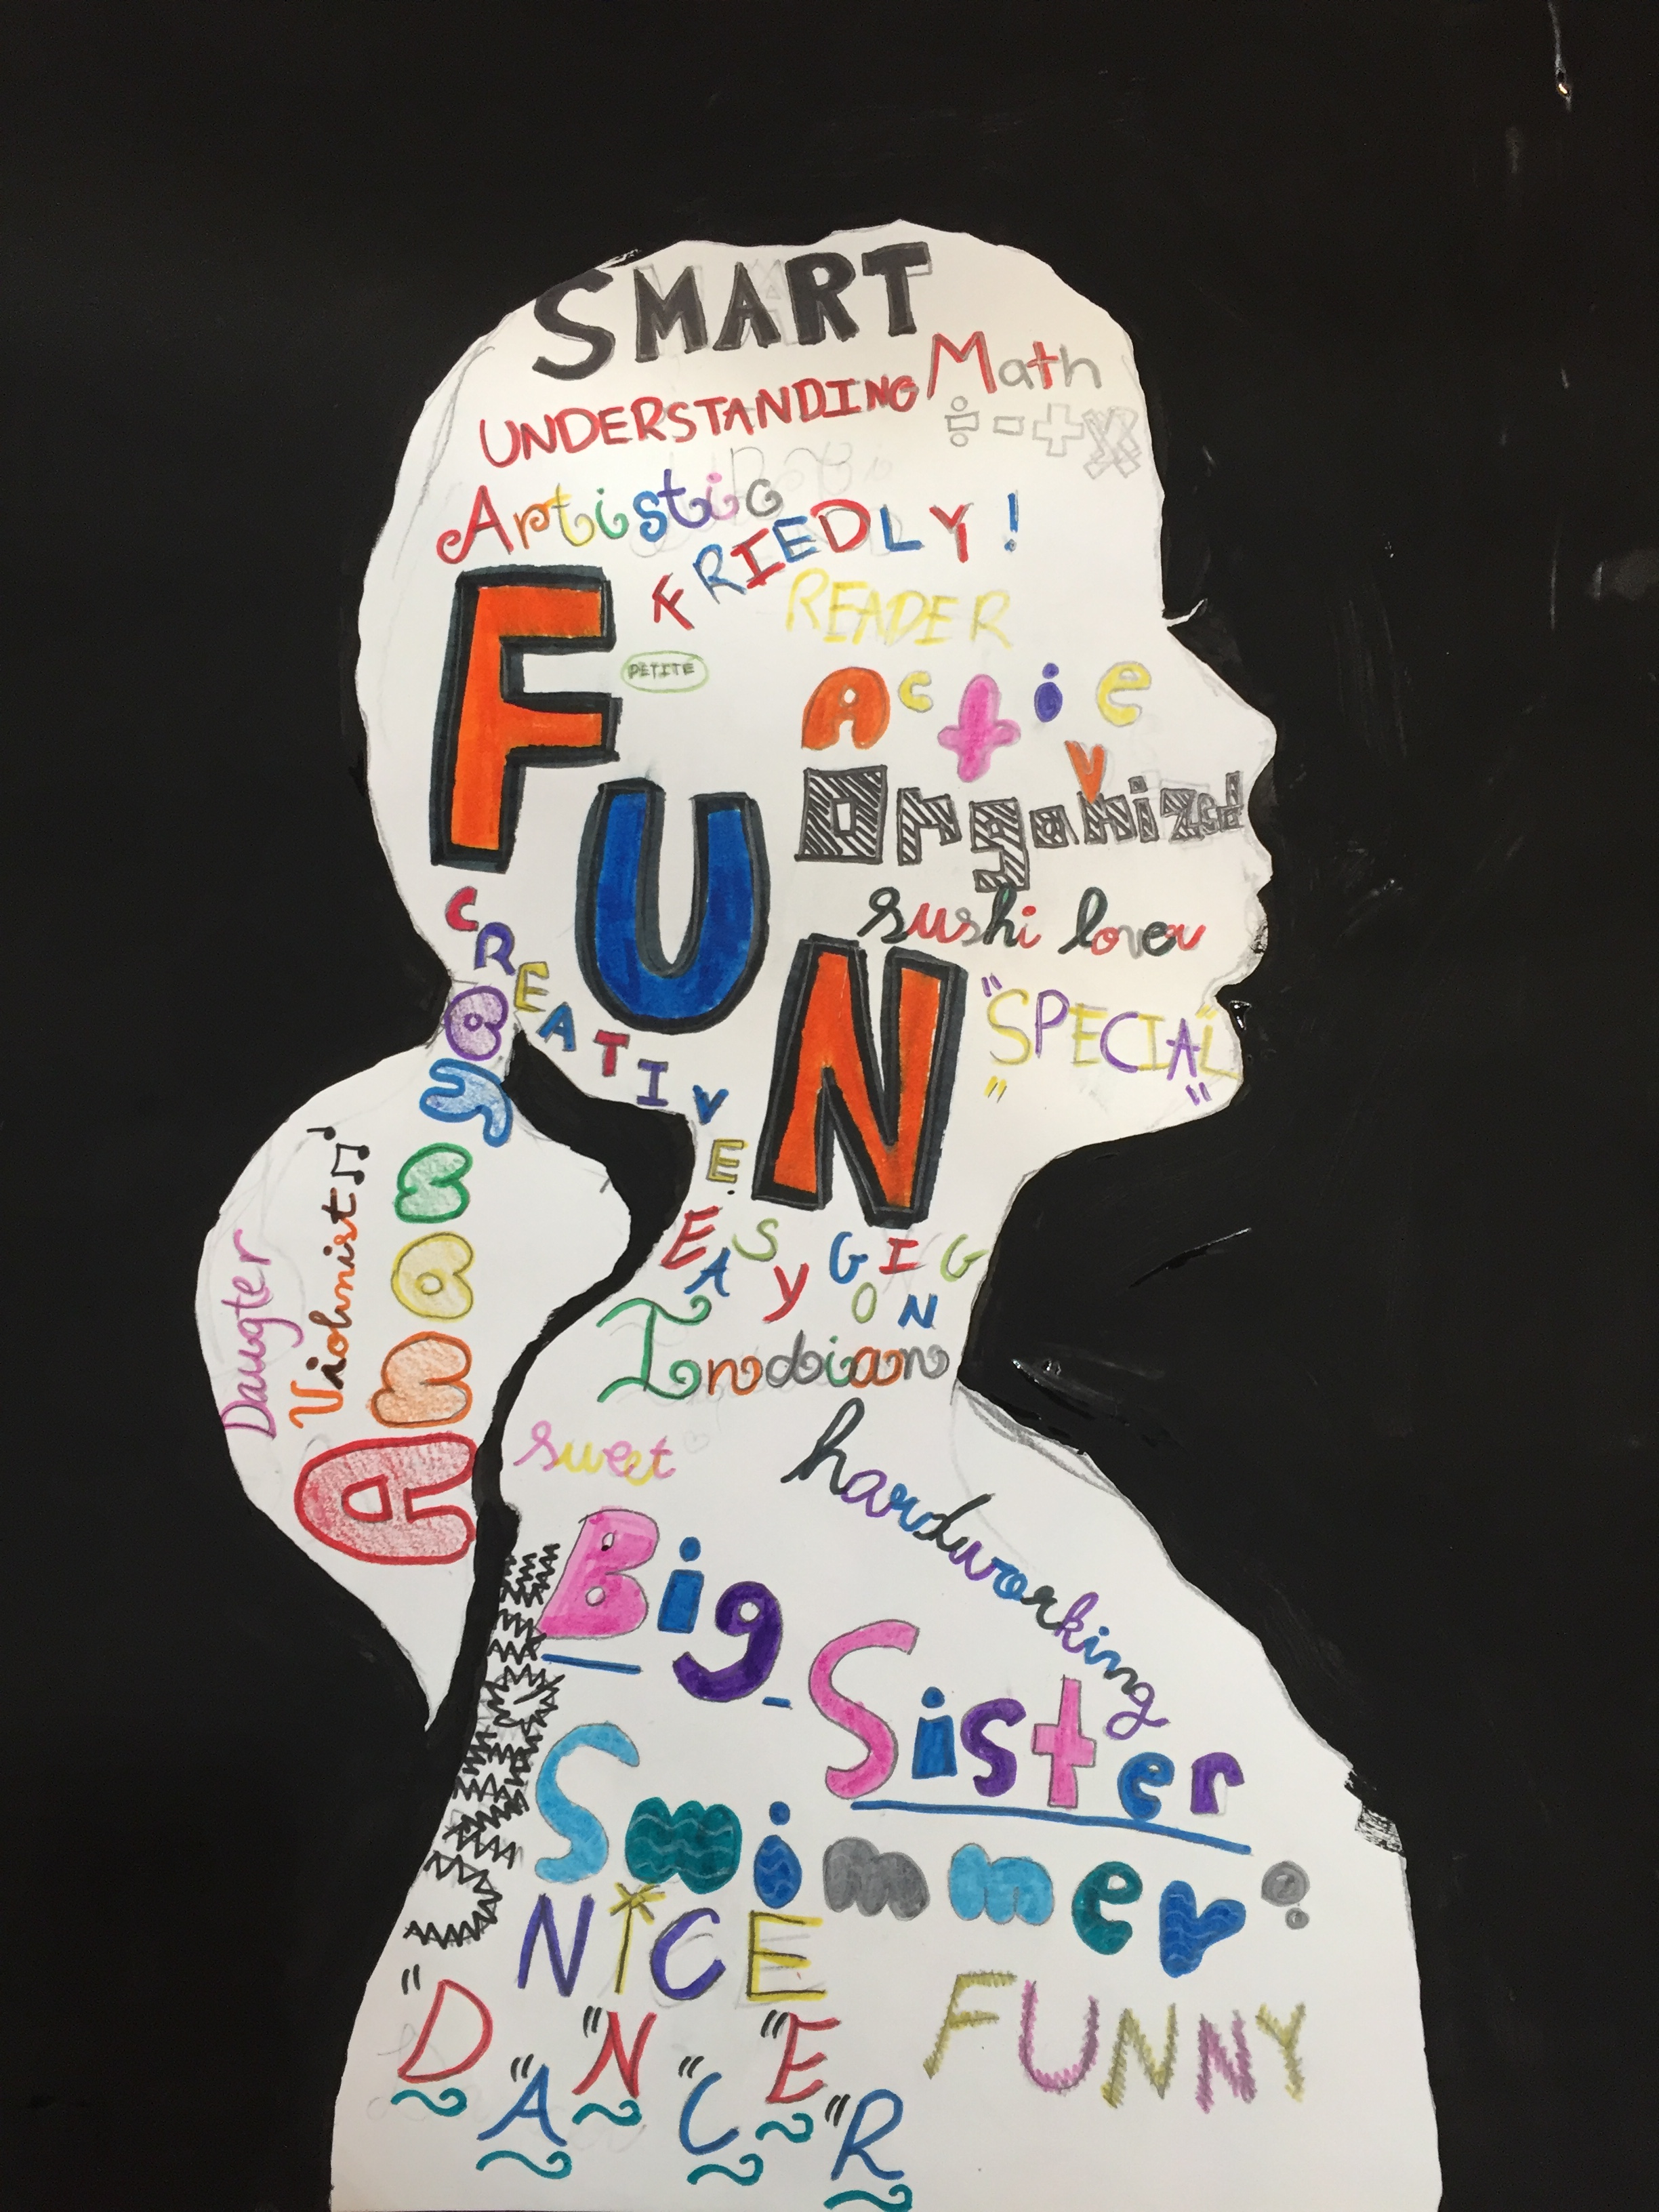 SMART
Math
UNDERSTANDING
÷ - + x
Artistic
FRIEDLY!
READER
FUN
PETITE
Active
Organized
sushi lover
"SPECIAL"
CREATIVE.
EASY GOING
Indian
Ananya
Violinist
Daugter
sweet
hardworking
Big Sister
Swimmer!
NiCE
"D"A"N"C"E"R
FUNNY